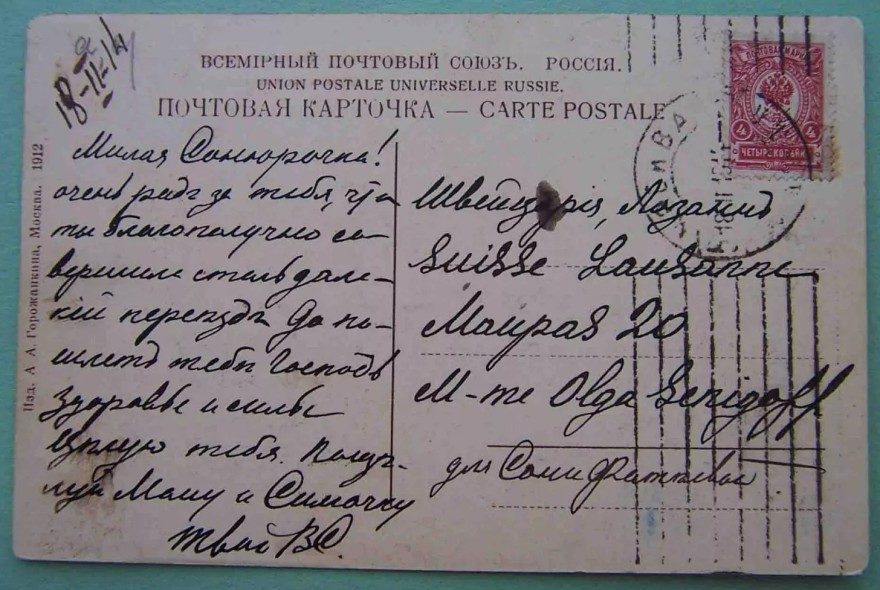 18-II-14
ВСЕМІРНЫЙ ПОЧТОВЫЙ СОЮЗЪ. РОССІЯ.
UNION POSTALE UNIVERSELLE RUSSIE.
ПОЧТОВАЯ КАРТОЧКА — CARTE POSTALE
ПОЧТОВАЯ МАРКА
4 4
ЧЕТЫРЕ КОПѢЙКИ
МОСКВА
Изд. А А. Горожанкина, Москва. 1912
Милая Сонюрочка!
очень радъ за тебя, что
ты благополучно со
вершила столь дале-
кій переѣздъ Да по-
шлетъ тебѣ Господь
Здоровье и силы
Цѣлую тебя. Поцѣ-
луй Маму и Симочку
Твой ВС.
Швейцарія, Лозаннъ
Suisse Lausanne
Maupas 20
M-me Olga
для Сони